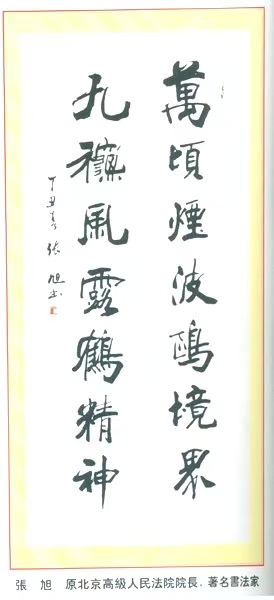 萬頃煙波鷗境界
九龝風露鶴精神
丁丑春 张旭书
張 旭 原北京高級人民法院院長、著名書法家